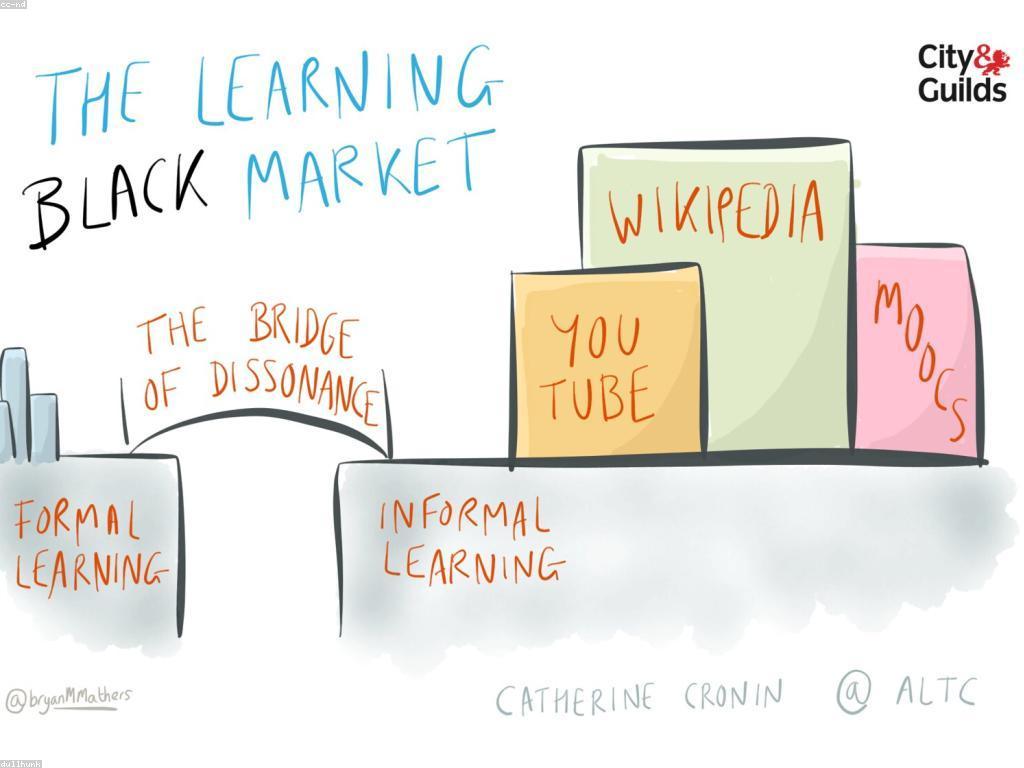 cc-nd
THE LEARNING
BLACK MARKET
City&
Guilds
THE BRIDGE
OF DISSONANCE
YOU
TUBE
WIKIPEDIA
MOOCS
FORMAL
LEARNING
INFORMAL
LEARNING
@bryanMMathers
CATHERINE CRONIN @ ALTC
dullhunk